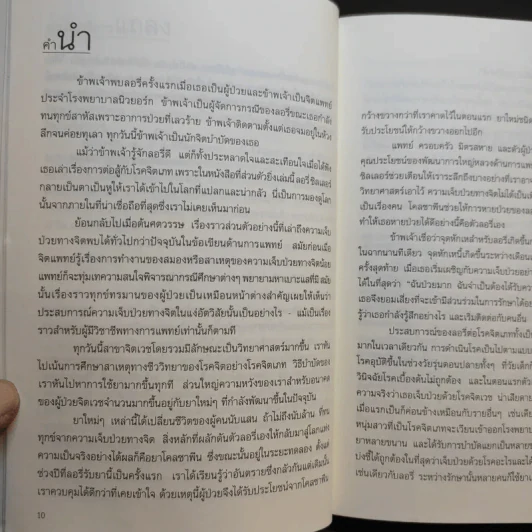 คำนำ
ข้าพเจ้าพบลอรีครั้งแรกเมื่อเธอเป็นผู้ป่วยและข้าพเจ้าเป็นจิตแพทย์
ประจำโรงพยาบาลนิวยอร์ก ข้าพเจ้าเป็นผู้จัดการกรณีของลอรีขณะเธอกำลัง
ทนทุกข์สาหัสเพราะอาการป่วยที่เลวร้าย ข้าพเจ้าติดตามตั้งแต่เธอจมอยู่ในห้วง
ลึกจนค่อยทุเลา ทุกวันนี้ข้าพเจ้าเป็นนักจิตบำบัดของเธอ
แม้ว่าข้าพเจ้ารู้จักลอรีดี แต่ก็ทั้งประหลาดใจและสะเทือนใจเมื่อได้ฟัง
เธอเล่าเรื่องการต่อสู้กับโรคจิตเภท เพราะในหนังสือที่ส่วนตัวยิ่งเล่มนี้ ลอรี ชิลเลอร์
กลายเป็นตาเป็นหูให้เราได้เข้าไปในโลกที่แปลกและน่ากลัว นี่เป็นการมองดูโลก
นั้นจากภายในที่น่าเชื่อถือที่สุดซึ่งเราไม่เคยเห็นมาก่อน
ย้อนกลับไปเมื่อต้นศตวรรษ เรื่องราวส่วนตัวอย่างนี้ที่เล่าถึงความเจ็บ
ป่วยทางจิตพบได้ทั่วไปกว่าปัจจุบันในข้อเขียนด้านการแพทย์ สมัยก่อนเมื่อ
จิตแพทย์รู้เรื่องการทำงานของสมองหรือสาเหตุของความเจ็บป่วยทางจิตน้อย
แพทย์ก็จะทุ่มเทความสนใจพิจารณากรณีศึกษาต่างๆ พยายามหาเบาะแสที่มี สมัย
นั้นเรื่องราวทุกข์ทรมานของผู้ป่วยเป็นเหมือนหน้าต่างสำคัญเผยให้เห็นว่า
ประสบการณ์ความเจ็บป่วยทางจิตในแง่อัตวิสัยนั้นเป็นอย่างไร - แม้เป็นเรื่อง
ราวสำหรับผู้มีวิชาชีพทางการแพทย์เท่านั้นก็ตามที
ทุกวันนี้สาขาจิตเวชโดยรวมมีลักษณะเป็นวิทยาศาสตร์มากขึ้น เราหัน
ไปเน้นการศึกษาสาเหตุทางชีววิทยาของโรคจิตอย่างโรคจิตเภท วิธีบำบัดของ
เราหันไปหาการใช้ยามากขึ้นทุกที ส่วนใหญ่ความหวังของเราสำหรับอนาคต
ของผู้ป่วยจิตเวชจำนวนมากขึ้นอยู่กับยาใหม่ๆ ที่กำลังพัฒนาขึ้นในปัจจุบัน
ยาใหม่ๆ เหล่านี้ได้เปลี่ยนชีวิตของผู้คนนับแสน ถ้าไม่ถึงนับล้าน ที่ทน
ทุกข์จากความเจ็บป่วยทางจิต สิ่งหลักที่ผลักดันตัวลอรีเองให้กลับมาสู่โลกแห่ง
ความเป็นจริงอย่างได้ผลก็คือยาโคลซาพีน ซึ่งขณะนั้นอยู่ในระยะทดลอง ตั้งแต่
ช่วงปีที่ลอรีรับยานี้เป็นครั้งแรก เราได้เรียนรู้ว่าอันตรายซึ่งกลัวกันแต่เดิมนั้น
เราควบคุมได้ดีกว่าที่เคยเข้าใจ ด้วยเหตุนี้ผู้ป่วยจึงได้รับประโยชน์จากโคลซาพีน
10
กว้างขวางกว่าที่เราคาดไว้ในตอนแรก ยาใหม่ชนิด
รับประโยชน์ได้กว้างขวางออกไปอีก
แพทย์ ครอบครัว มิตรสหาย และตัวผู้ป่วย
คุณประโยชน์ของพัฒนาการใหญ่หลวงด้านการแพทย์
ชิลเลอร์ช่วยเตือนให้เราระลึกถึงบางอย่างที่เราอาจ
วิทยาศาสตร์เอาไว้ ความเจ็บป่วยทางจิตไม่ได้เป็นเพียง
เป็นเรื่องคน โคลซาพีนช่วยให้การหายป่วยของลอรี
ทำให้เธอหายป่วยได้ดีอย่างนี้คือตัวลอรีเอง
ข้าพเจ้าเชื่อว่าจุดหักเหสำหรับลอรีเกิดขึ้น
ในฉากนาทีเดียว จุดหักเหนี้เกิดขึ้นระหว่างเดือน
ครั้งสุดท้าย เมื่อเธอเริ่มเผชิญกับความเจ็บป่วยอย่าง
ได้ในที่สุดว่า "ฉันป่วยมาก ฉันจำเป็นต้องได้รับความ
เธอจึงยอมเสี่ยงที่จะเข้ามีส่วนร่วมในการรักษาได้อย่าง
รู้ว่าเธอกำลังรู้สึกอย่างไร และเริ่มติดต่อกับคนอื่น
ประสบการณ์ของลอรีต่อโรคจิตเภททั้งเป็น
มากในเวลาเดียวกัน การดำเนินโรคเป็นไปตามแบบ
โรคอุบัติขึ้นในช่วงวัยรุ่นตอนปลายทั้งๆ ที่วัยเด็ก
วินิจฉัยโรคเบื้องต้นไม่ถูกต้อง และในตอนแรกตัว
ความจริงว่าเธอเจ็บป่วยด้วยโรคจิตเวช น่าเสียดาย
เมื่อแรกเป็นก็ค่อนข้างเหมือนกับรายอื่นๆ เช่นเดียว
หนุ่มสาวที่เป็นโรคจิตเภทจะเวียนเข้าออกโรงพยาบาล
ยาหลายขนาน และได้รับการบำบัดแยกเป็นหลายชนิด
บ่งชี้ได้ถูกต้องในที่สุดว่าเจ็บป่วยด้วยโรคอะไรและได้
เช่นเดียวกับลอรี ระหว่างรักษานั้นหลายคนก็ใช้ยา